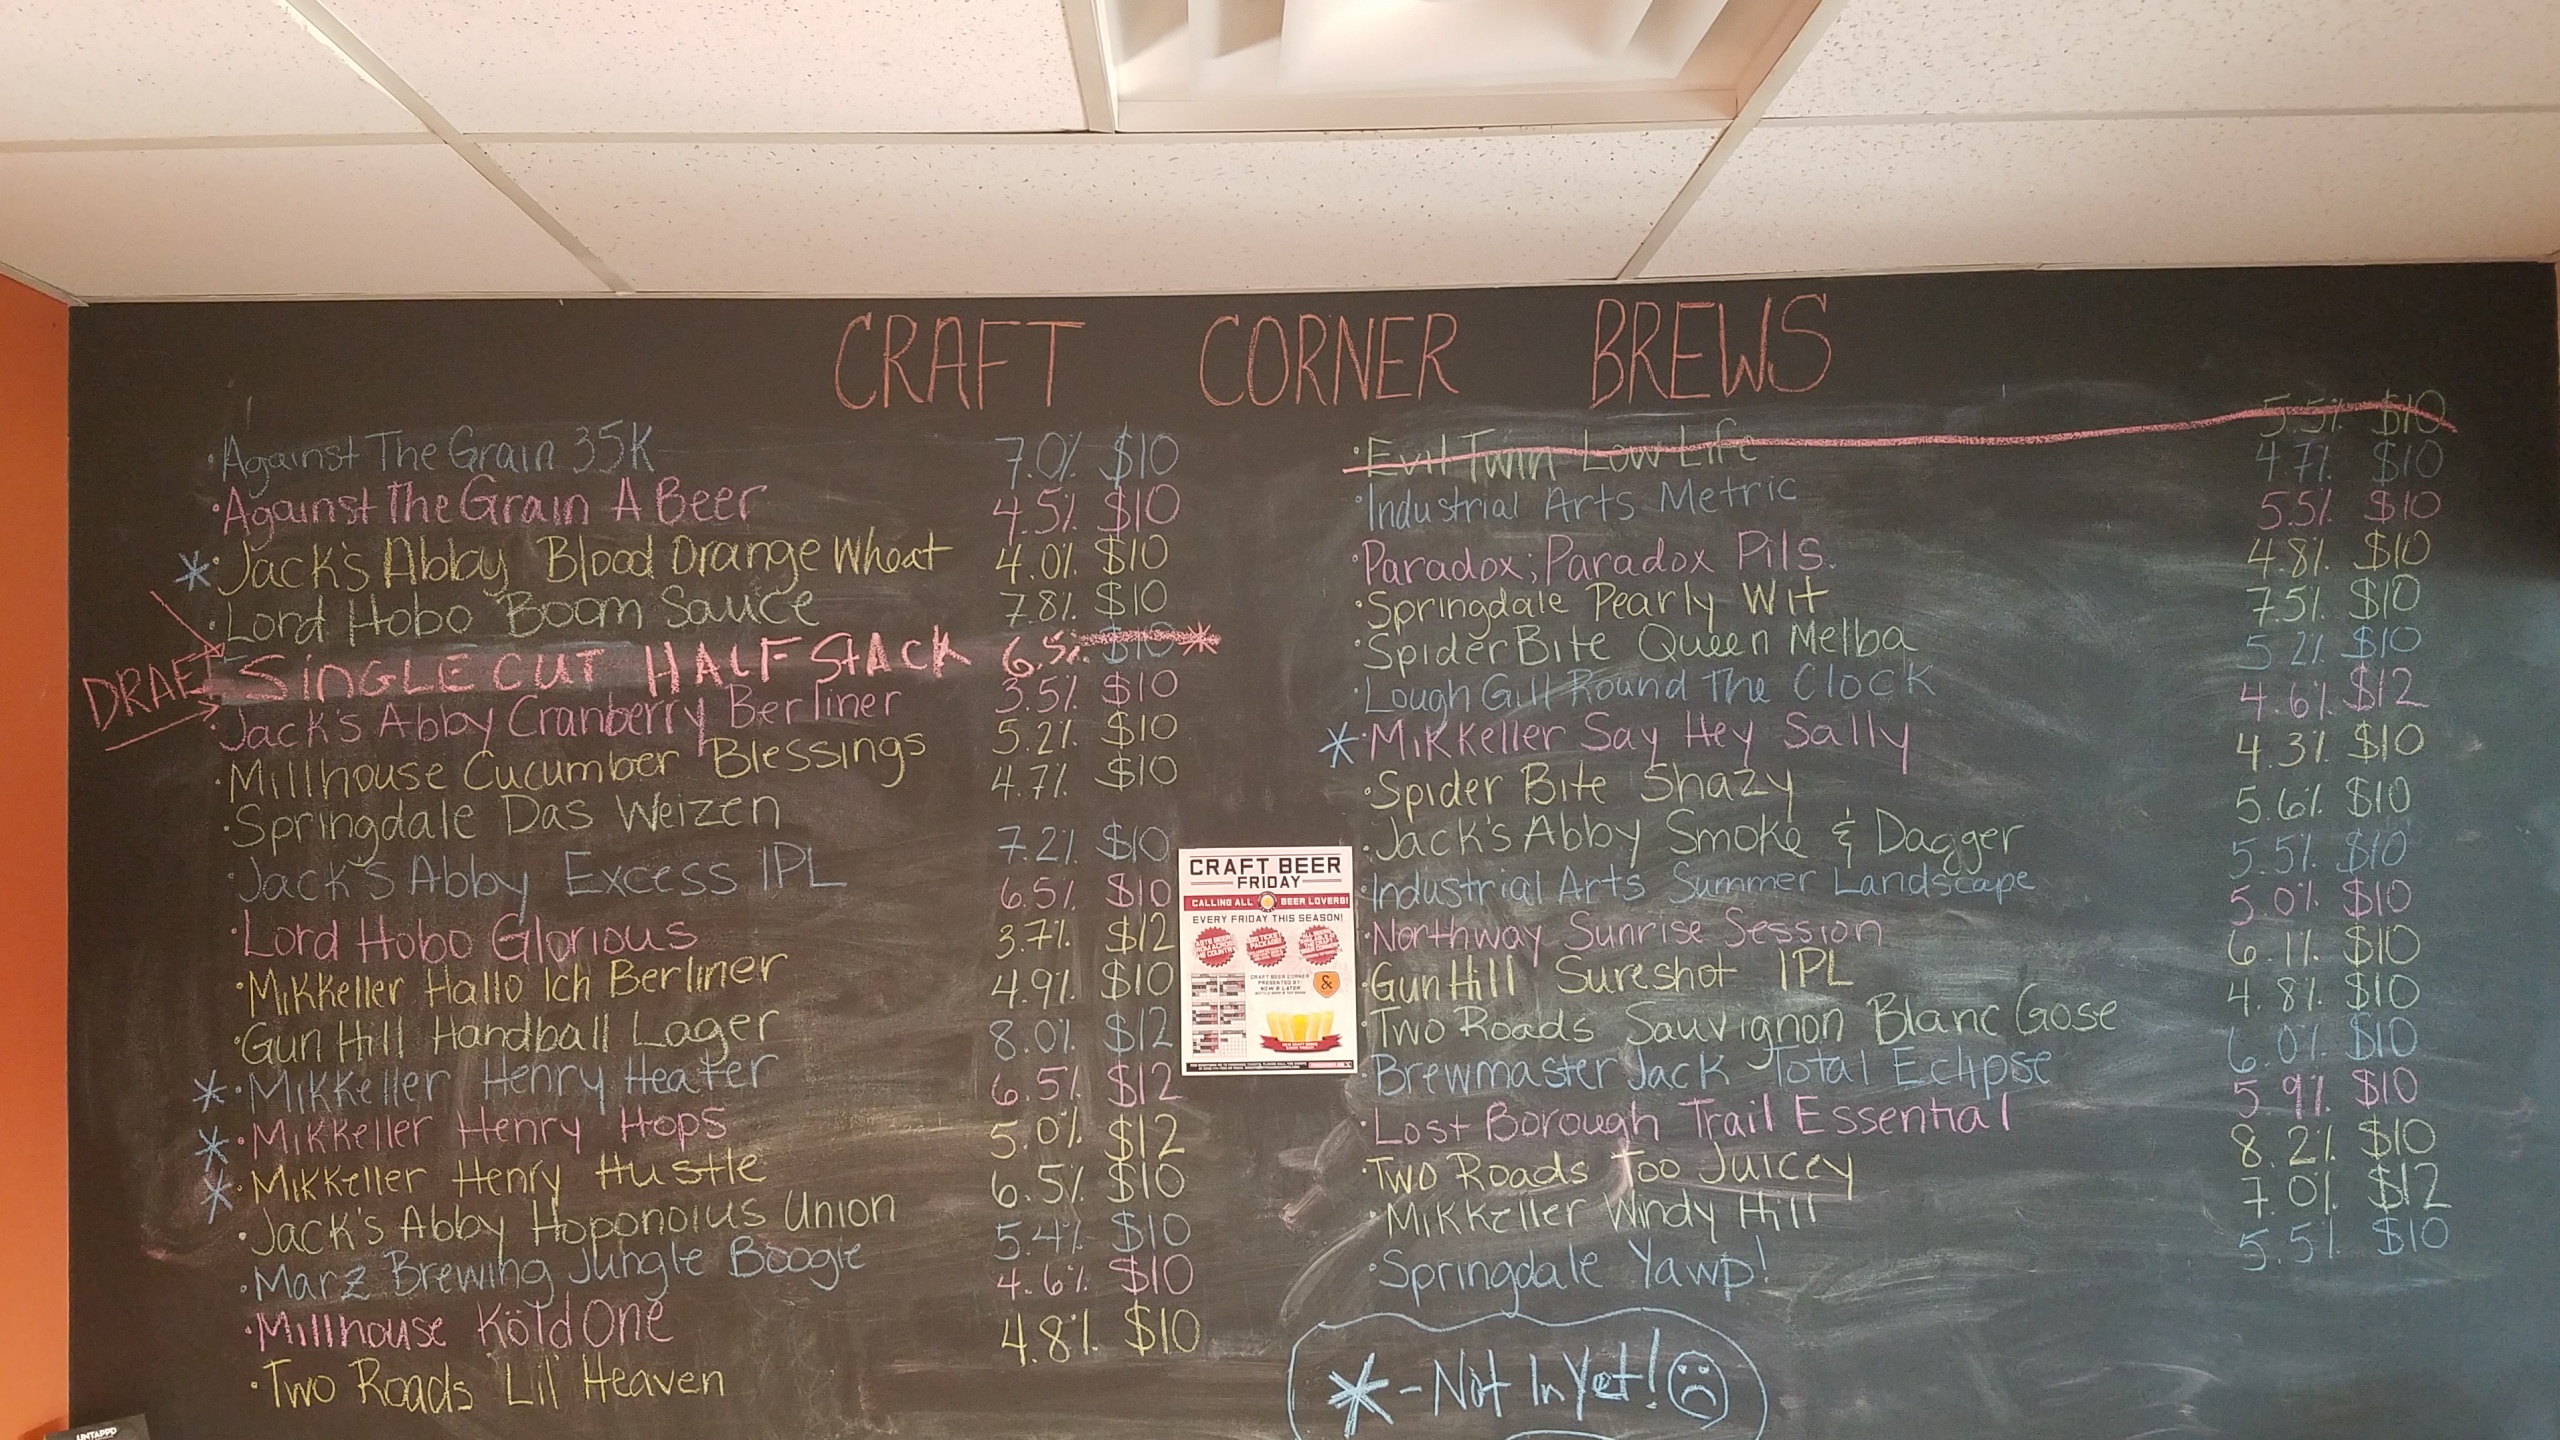 CRAFT CORNER BREWS
Against The Grain 35K 7.0% $10
Against The Grain A Beer 4.5% $10
* Jack's Abby Blood Orange Wheat 4.0% $10
Lord Hobo Boom Sauce 7.8% $10
DRAFT SINGLE CUT HALF STACK 6.5% $10 *
Jack's Abby Cranberry Berliner 3.5% $10
Millhouse Cucumber Blessings 5.2% $10
Springdale Das Weizen 4.7% $10
Jack's Abby Excess IPL 7.2% $10
Lord Hobo Glorious 6.5% $10
Mikkeller Hallo Ich Berliner 3.7% $12
Gun Hill Handball Lager 4.9% $10
* Mikkeller Henry Heater 8.0% $12
* Mikkeller Henry Hops 6.5% $12
* Mikkeller Henry Hustle 5.0% $12
Jack's Abby Hoponoius Union 6.5% $10
Marz Brewing Jungle Boogie 5.4% $10
Millhouse Köld One 4.6% $10
Two Roads Lil' Heaven 4.8% $10
Evil Twin Low Life 5.5% $10
Industrial Arts Metric 4.7% $10
Paradox; Paradox Pils. 5.5% $10
Springdale Pearly Wit 4.8% $10
Spider Bite Queen Melba 7.5% $10
Lough Gill Round The Clock 5.2% $10
* Mikkeller Say Hey Sally 4.6% $12
Spider Bite Shazy 4.3% $10
Jack's Abby Smoke & Dagger 5.6% $10
Industrial Arts Summer Landscape 5.5% $10
Northway Sunrise Session 5.0% $10
Gun Hill Sureshot IPL 6.1% $10
Two Roads Sauvignon Blanc Gose 4.8% $10
Brewmaster Jack Total Eclipse 6.0% $10
Lost Borough Trail Essential 5.9% $10
Two Roads Too Juicey 8.2% $10
Mikkeller Windy Hill 7.0% $12
Springdale Yawp! 5.5% $10
* - Not In Yet!
CRAFT BEER
FRIDAY
CALLING ALL BEER LOVERS!
EVERY FRIDAY THIS SEASON!
CRAFT BEER CORNER
PRESENTED BY:
NOW & LATER
&
UNTAPPD